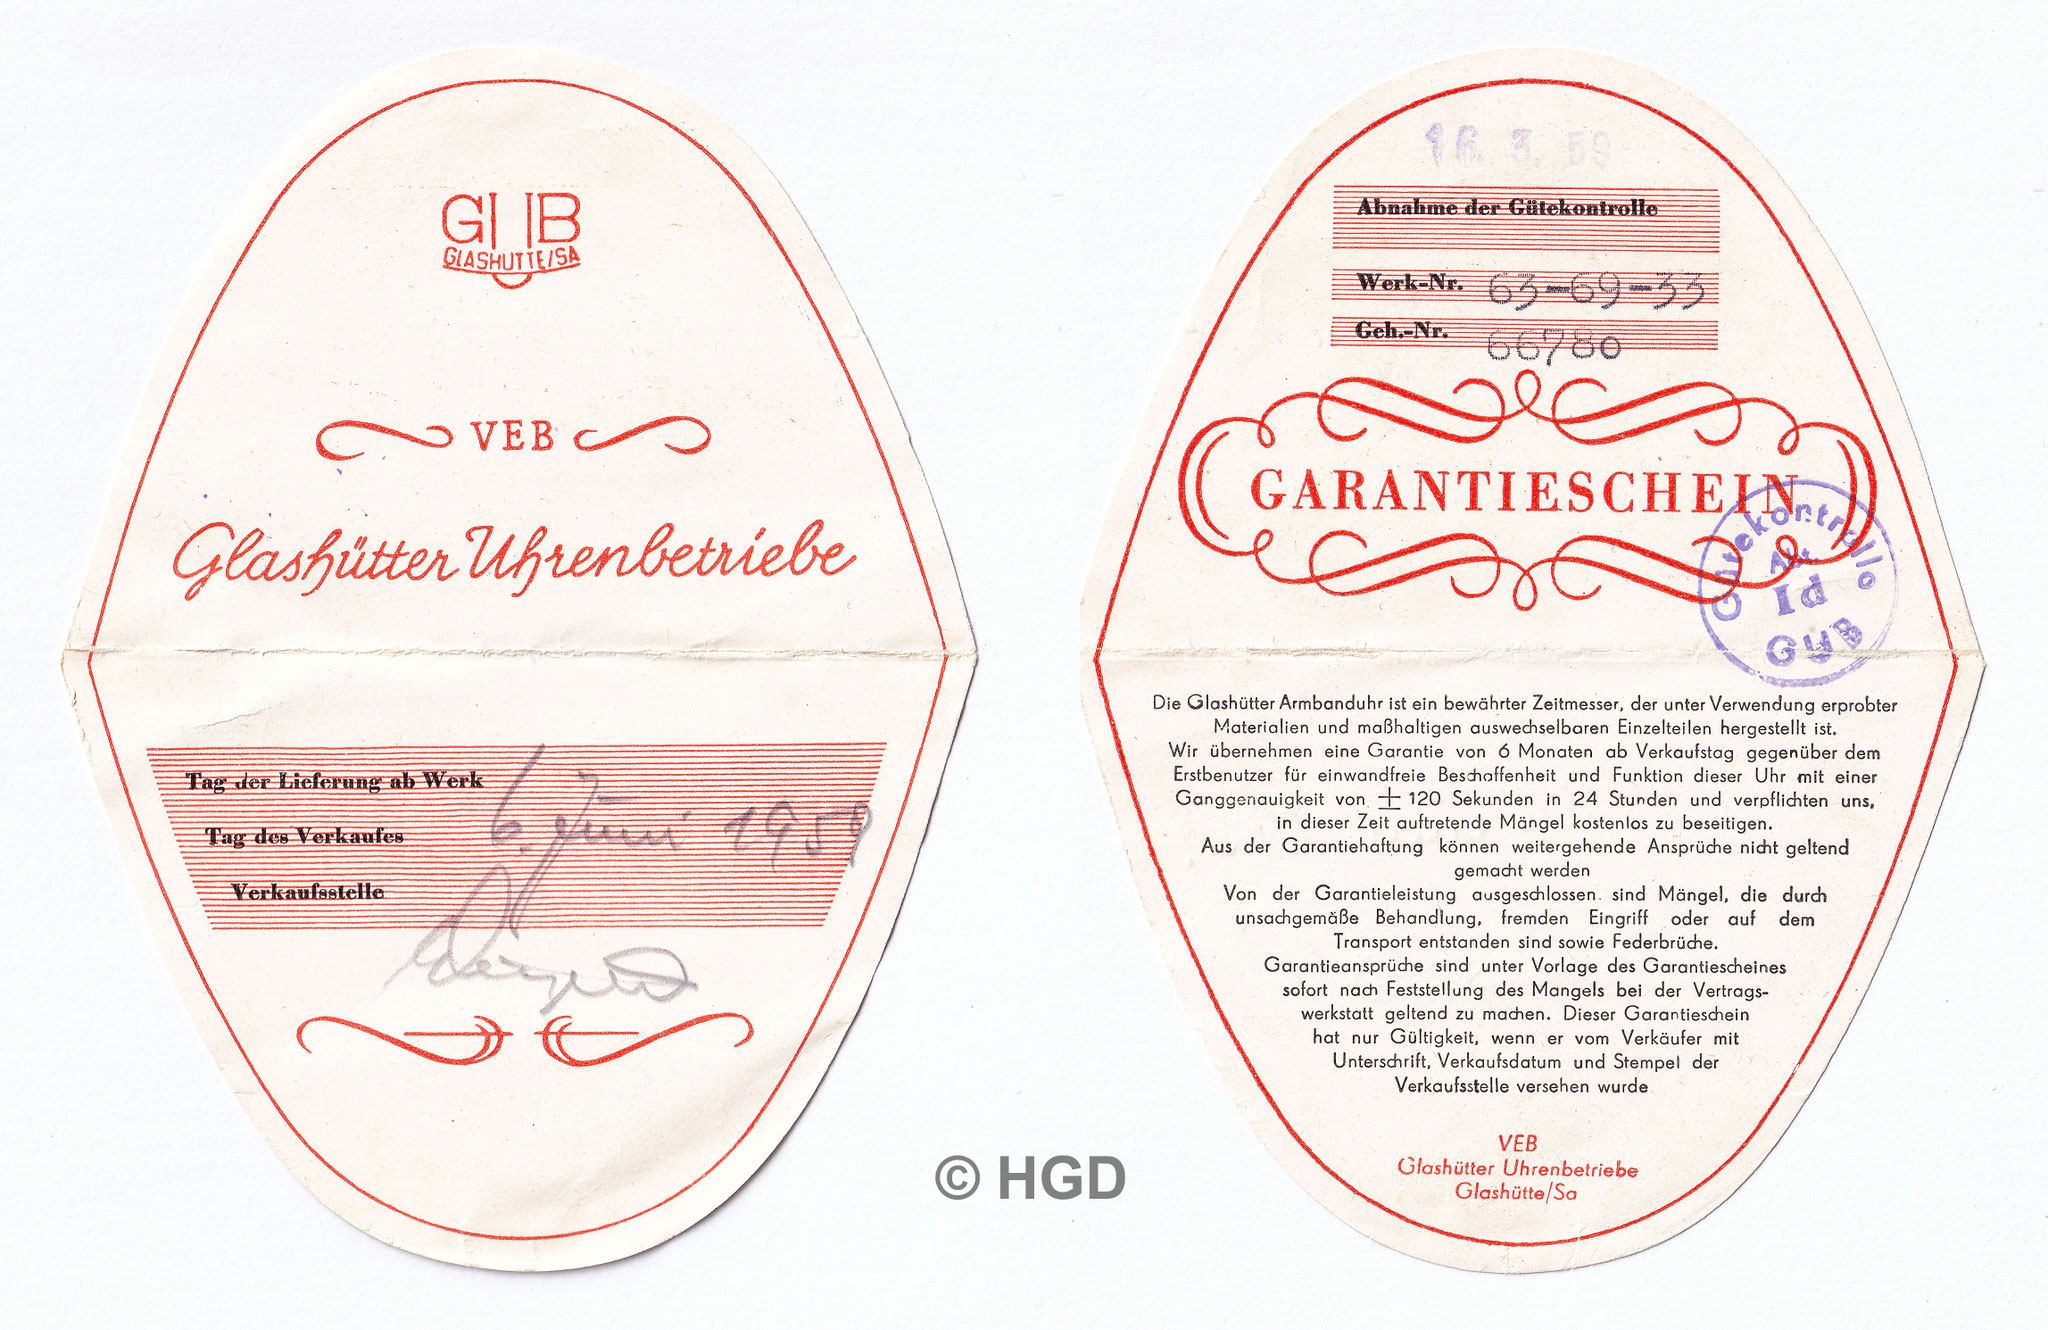 GUB
GLASHUTTE/SA
VEB
Glashütter Uhrenbetriebe
Tag der Lieferung ab Werk
Tag des Verkaufes 6. Juni 1959
Verkaufsstelle
16. 3. 59
Abnahme der Gütekontrolle
Werk-Nr. 63-69-33
Geh.-Nr. 66780
GARANTIESCHEIN
Gütekontrolle
Abt.
Id
GUB
Die Glashütter Armbanduhr ist ein bewährter Zeitmesser, der unter Verwendung erprobter
Materialien und maßhaltigen auswechselbaren Einzelteilen hergestellt ist.
Wir übernehmen eine Garantie von 6 Monaten ab Verkaufstag gegenüber dem
Erstbenutzer für einwandfreie Beschaffenheit und Funktion dieser Uhr mit einer
Ganggenauigkeit von ± 120 Sekunden in 24 Stunden und verpflichten uns,
in dieser Zeit auftretende Mängel kostenlos zu beseitigen.
Aus der Garantiehaftung können weitergehende Ansprüche nicht geltend
gemacht werden
Von der Garantieleistung ausgeschlossen. sind Mängel, die durch
unsachgemäße Behandlung, fremden Eingriff oder auf dem
Transport entstanden sind sowie Federbrüche.
Garantieansprüche sind unter Vorlage des Garantiescheines
sofort nach Feststellung des Mangels bei der Vertrags-
werkstatt geltend zu machen. Dieser Garantieschein
hat nur Gültigkeit, wenn er vom Verkäufer mit
Unterschrift, Verkaufsdatum und Stempel der
Verkaufsstelle versehen wurde
VEB
Glashütter Uhrenbetriebe
Glashütte/Sa
© HGD